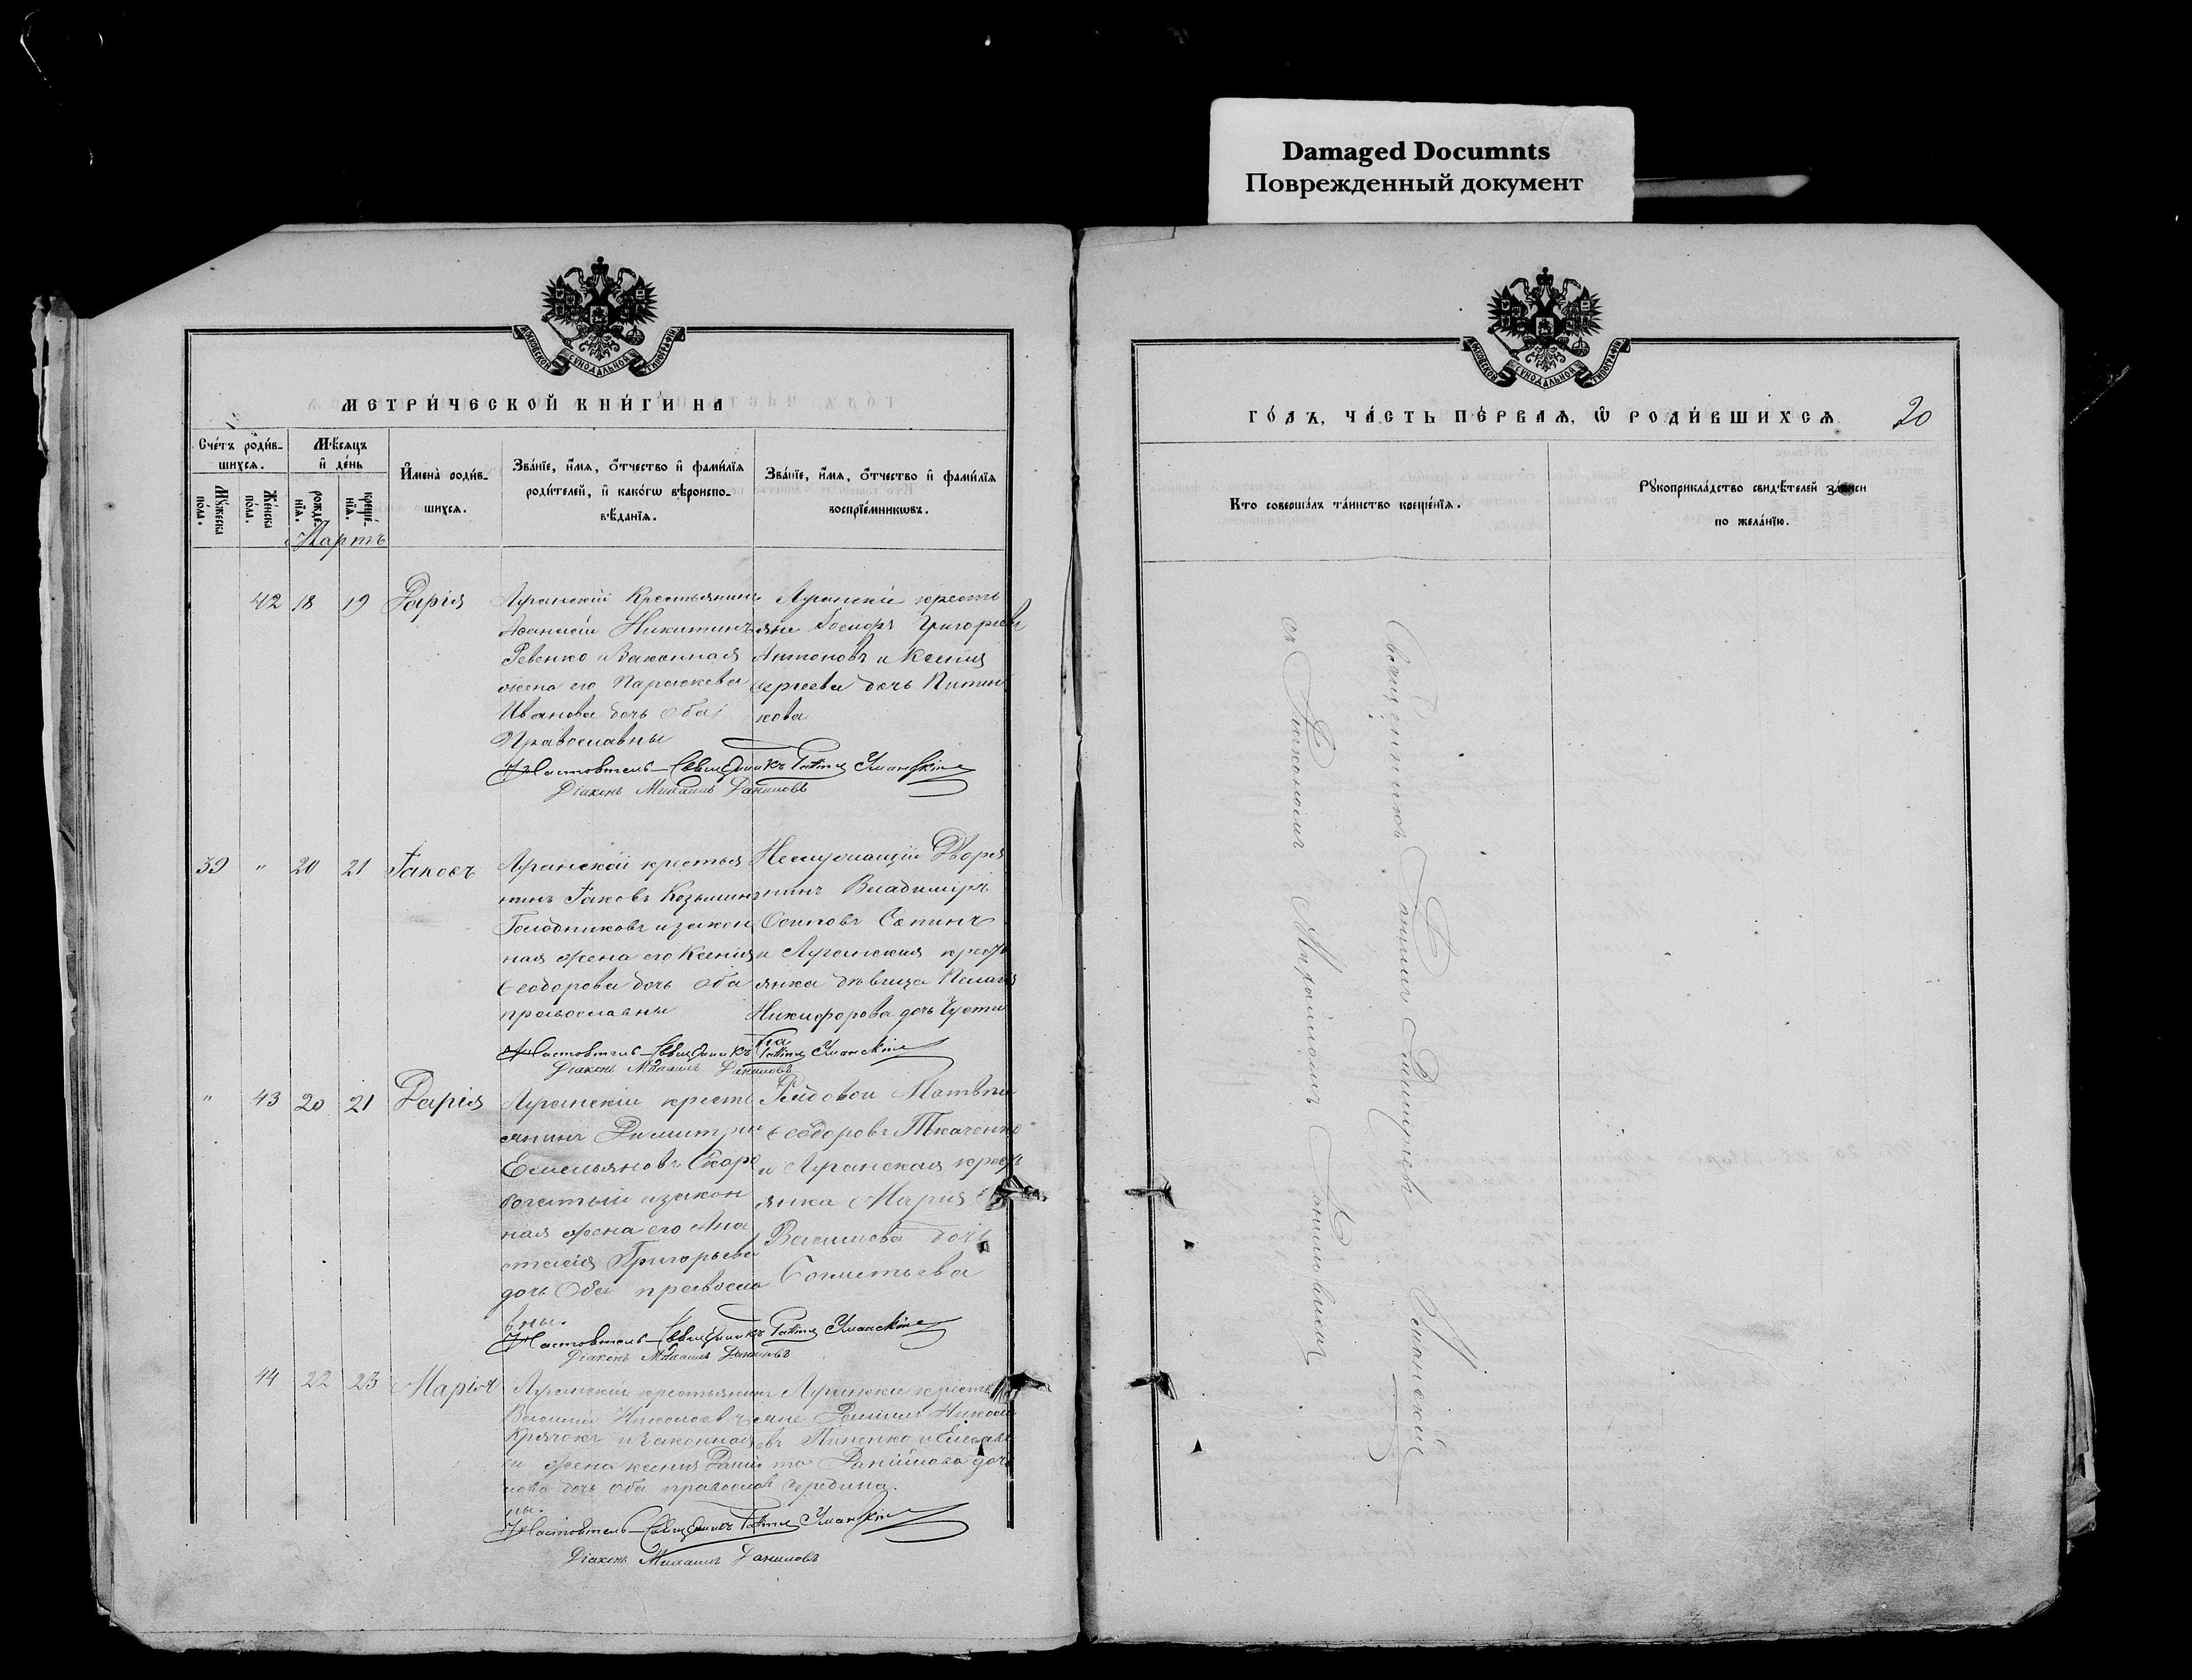 Damaged Documnts
Поврежденный документ
МОСКОВСКОЙ СѴНОДАЛЬНОЙ ТИПОГРАФІИ
МЕТРИ́ЧЕСКОЙ КНИ́ГИ НА
Сче́тъ роди́в-
шихся.
Мѣ́сяцъ
и҆ де́нь
Му́жеска
по́ла.
Же́нска
по́ла.
рожде́-
нїя.
креще́-
нїя.
И҆мена̀ роди́в-
шихся.
Зва́нїе, и҆́мя, ѻ҆́тчество и҆ фами́лїя
роди́телей, и҆ како́гѡ вѣроиспо-
вѣ́данїя.
Зва́нїе, и҆́мя, ѻ҆́тчество и҆ фами́лїя
воспрїе́мникѡвъ.
Мартъ
42 18 19 Дарія
Луганскій Крестьянинъ
Никитинъ
Ревенко и Законная
жена его Параскева
Иванова дочь оба
Православны
Луганскіе кресть
яне Григорьевъ
Антоновъ и Ксенія
Сергеева дочь
кова
Настоятель-Священникъ Даніилъ Уманскій
Діаконъ Михаилъ Даниловъ
39 " 20 21 Іаковъ
Луганской крестья
нинъ Іаковъ Козьминъ
Голодниковъ и закон
ная жена его Ксенія
Ѳеодорова дочь оба
православны
Неслужащій Дворя
нинъ Владиміръ
Осиповъ Сапинъ
и Луганская крест
янка дѣвица Пелагія
Никифорова дочь
Настоятель-Священникъ Даніилъ Уманскій
Діаконъ Михаилъ Даниловъ
" 43 20 21 Дарія
Луганскій кресть
янинъ Димитрій
Емельяновъ Скоро
богатый и закон
ная жена его Ана
стасія Григорьева
дочь Оба правосла
вны.
Рядовой Матвѣй
Ѳеодоровъ Ткаченко
и Луганская крест
янка Марія
Васильева дочь
Настоятель-Священникъ Даніилъ Уманскій
Діаконъ Михаилъ Даниловъ
44 22 23 Марія
Луганскій крестьянинъ
Василій Николаевъ
Крячокъ и Законная
его жена Ксенія Дані
лова дочь оба православ
ны.
Луганскіе кресть
яне Даніилъ Никола
евъ и Елиса
Даніилова дочь
Середина.
Настоятель-Священникъ Даніилъ Уманскій
Діаконъ Михаилъ Даниловъ
МОСКОВСКОЙ СѴНОДАЛЬНОЙ ТИПОГРАФІИ
ГО́ДЪ, ЧА́СТЬ ПЕ́РВАЯ, Ѡ҆ РОДИ́ВШИХСЯ
20
Кто соверша́лъ та́инство креще́нїя.
Рꙋкоприкла́дство свидѣ́телей за́писи
по жела́нїю.
Священникъ Даніилъ Уманскій
съ Діакономъ Михаиломъ Даниловымъ